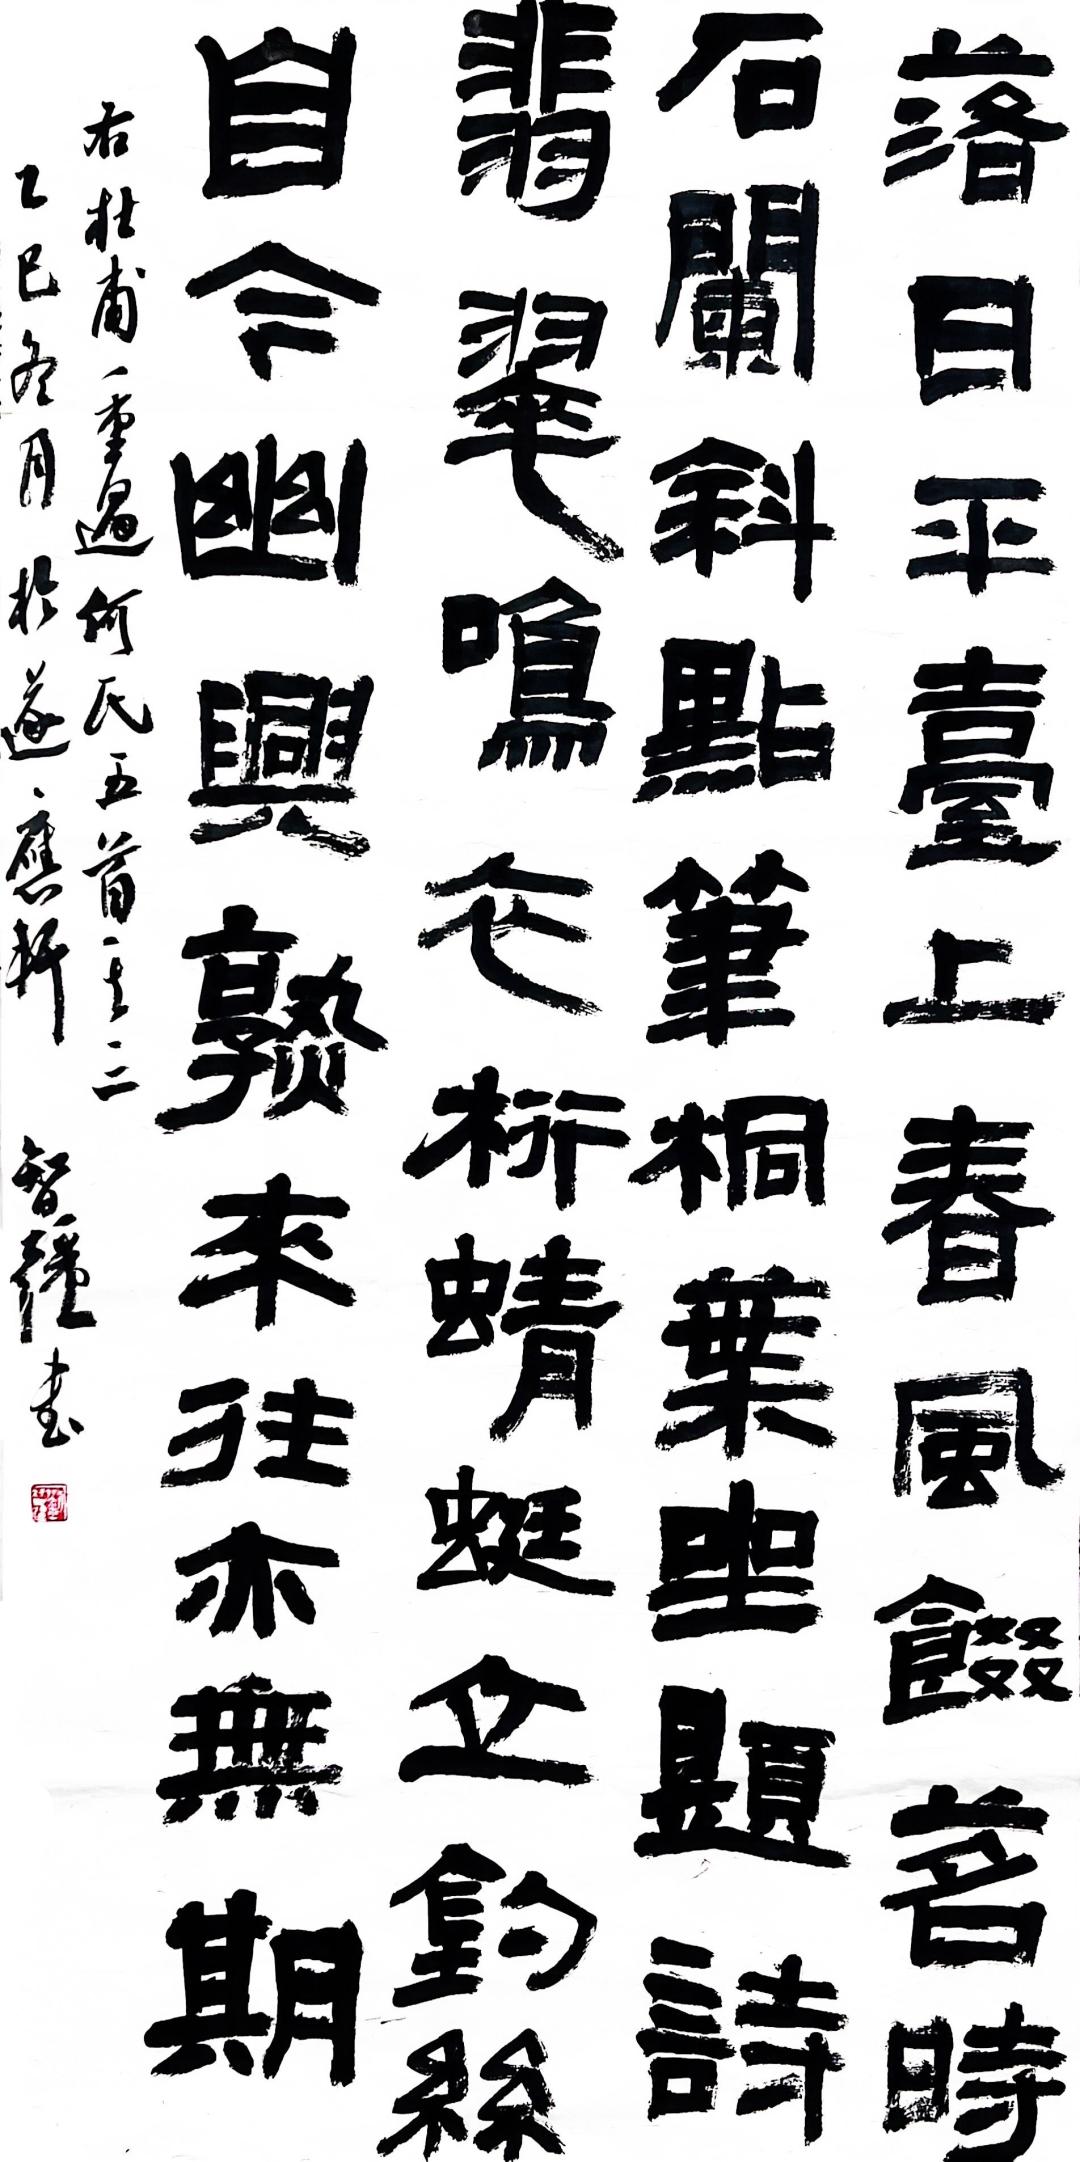 落日平臺上春風餟茗時
石闌斜點筆桐葉坐題詩
翡翠鳴衣桁蜻蜓立釣絲
自今幽興孰來往亦無期
右杜甫重過何氏五首之三
乙巳冬月於遂應軒
智疆书